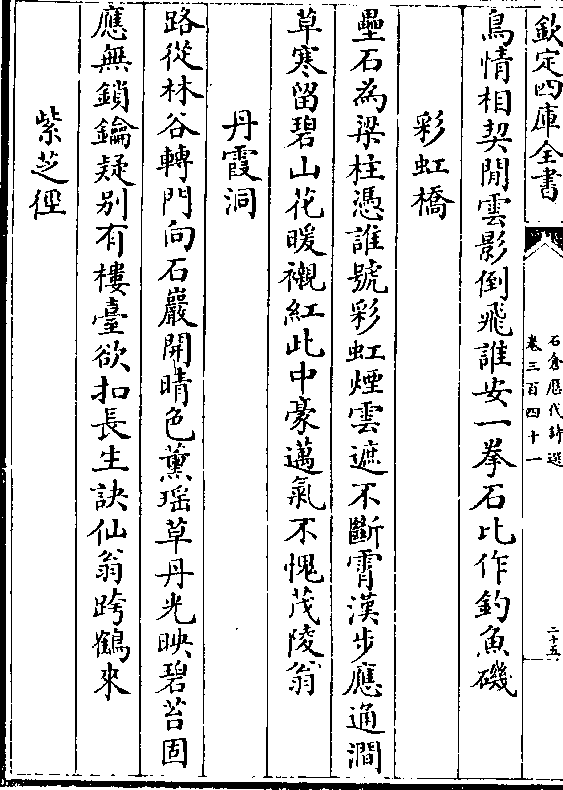 欽定四庫全書
石倉歷代詩選
卷三百四十一
二十五
鳥情相契閒雲影倒飛誰安一拳石比作釣魚磯
彩虹橋
壘石為梁柱憑誰號彩虹煙雲遮不斷霄漢步應通澗
草寒留碧山花暖襯紅此中豪邁氣不愧茂陵翁
丹霞洞
路從林谷轉門向石巖開晴色薰瑶草丹光映碧苔固
應無鎖鑰疑别有樓臺欲扣長生訣仙翁跨鶴來
紫芝徑